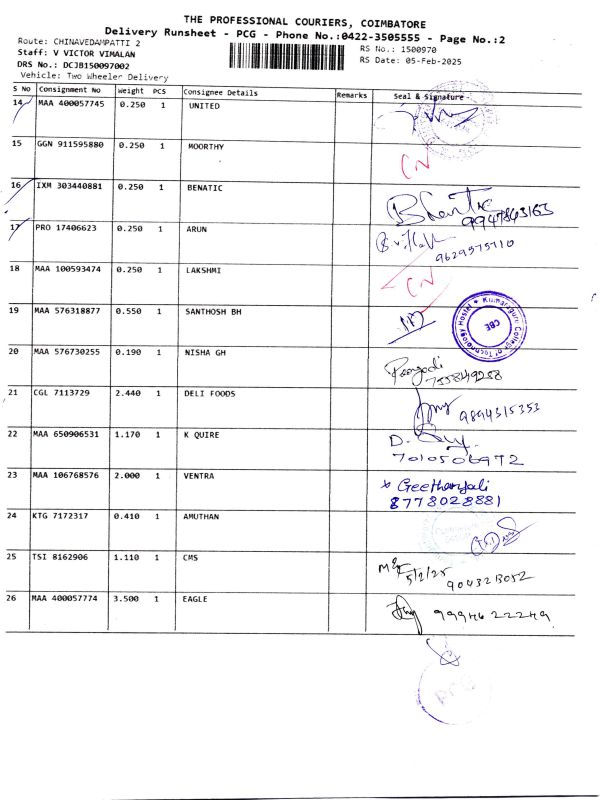 THE PROFESSIONAL COURIERS, COIMBATORE
Delivery Runsheet - PCG - Phone No.:0422-3505555 - Page No.:2
Route: CHINAVEDAMPATTI 2
RS No.: 1500970
Staff: V VICTOR VIMALAN
RS Date: 05-Feb-2025
DRS No.: DCJB150097002
Vehicle: Two Wheeler Delivery
S No Consignment No Weight PCS Consignee Details Remarks Seal & Signature
14 MAA 400057745 0.250 1 UNITED
15 GGN 911595880 0.250 1 MOORTHY CN
16 IXM 303440881 0.250 1 BENATIC
9947843163
17 PRO 17406623 0.250 1 ARUN
9629575710
18 MAA 100593474 0.250 1 LAKSHMI CN
19 MAA 576318877 0.550 1 SANTHOSH BH
Kumaraguru College of Technology Hostel
CBE
20 MAA 576730255 0.190 1 NISHA GH
21 CGL 7113729 2.440 1 DELI FOODS
9894315353
22 MAA 650906531 1.170 1 K QUIRE
7010506972
23 MAA 106768576 2.000 1 VENTRA Geethanjali
8778028881
24 KTG 7172317 0.410 1 AMUTHAN
25 TSI 8162906 1.110 1 CMS
5/2/25
26 MAA 400057774 3.500 1 EAGLE
9994622249
PCG